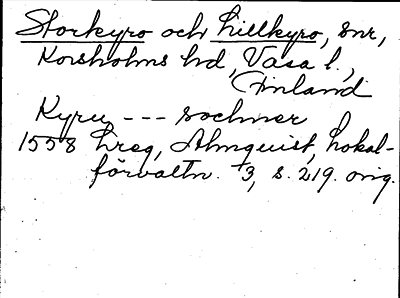 Storkyro och Lillkyro, snr,
Korsholms hd, Vasa l.,
Finland
Kyru --- sochner
1558 Lreg, Almquist, Lokal-
förvaltn. 3, s. 219. orig.